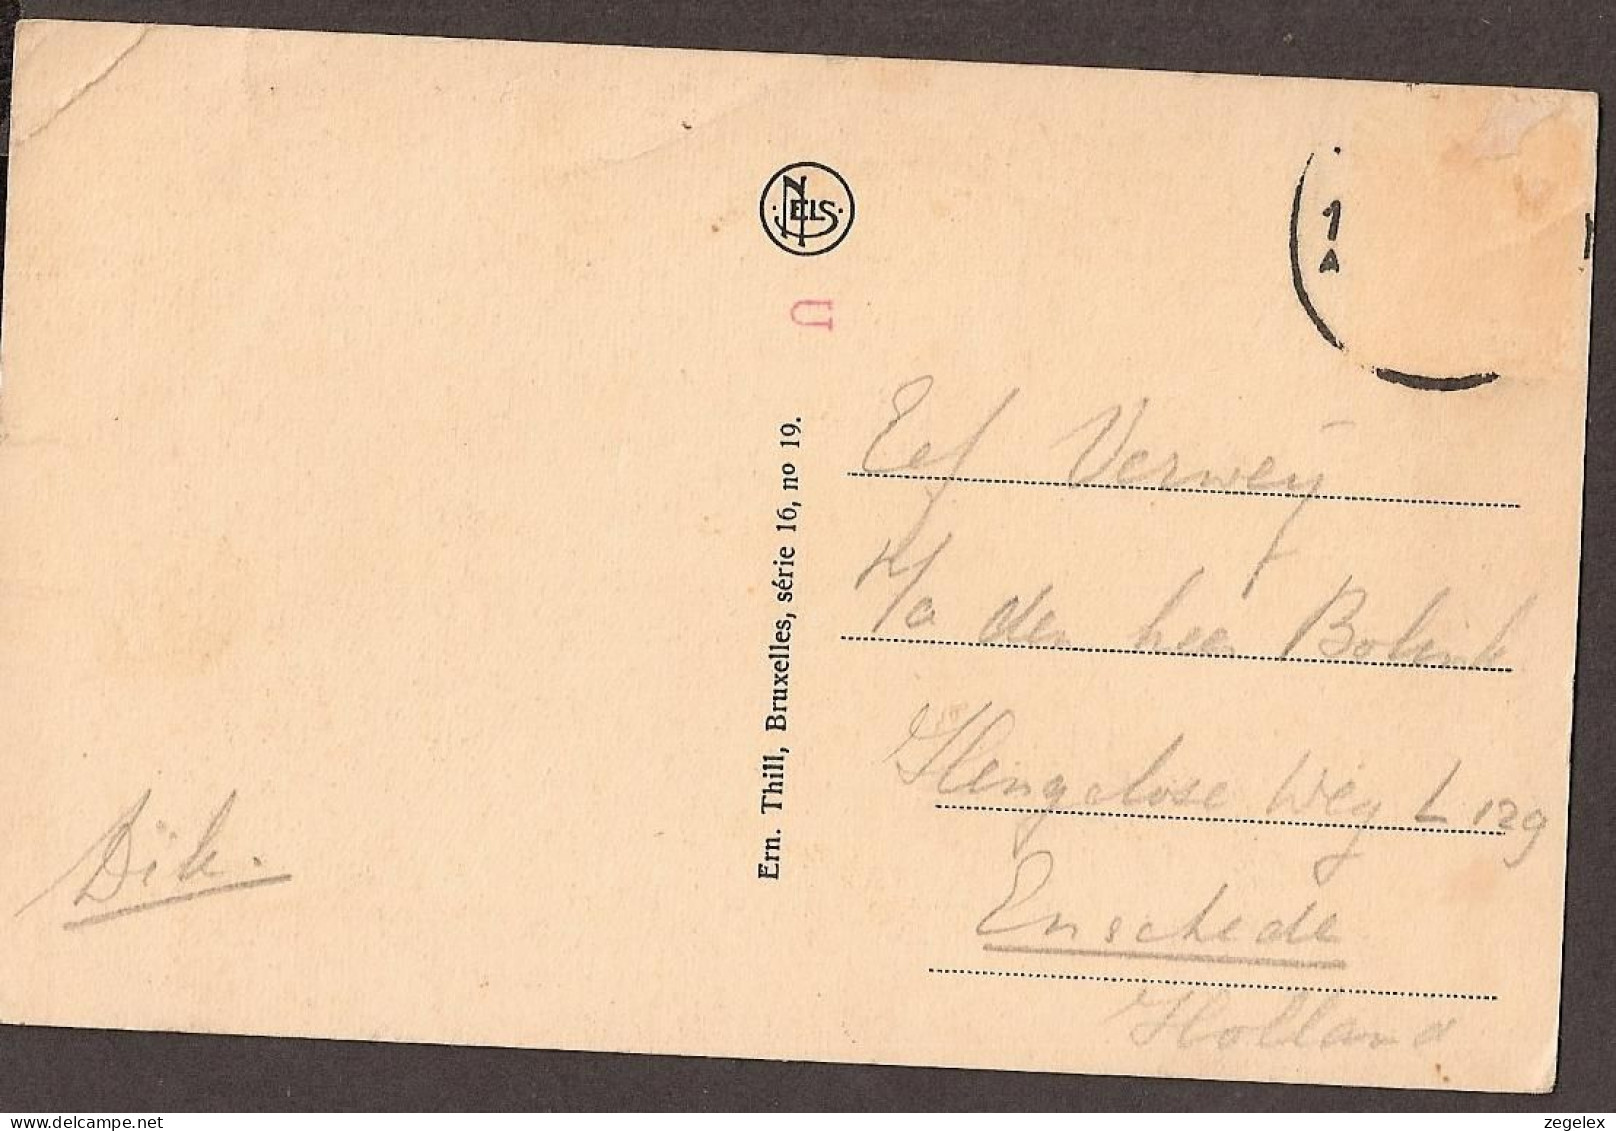 NELS
1
A
U
Ern. Thill, Bruxelles, série 16, nº 19.
Eef Verweÿ
p/a den heer Bolink
Hengelose Weg L 129
Enschede
Holland
Dik.
zegelex